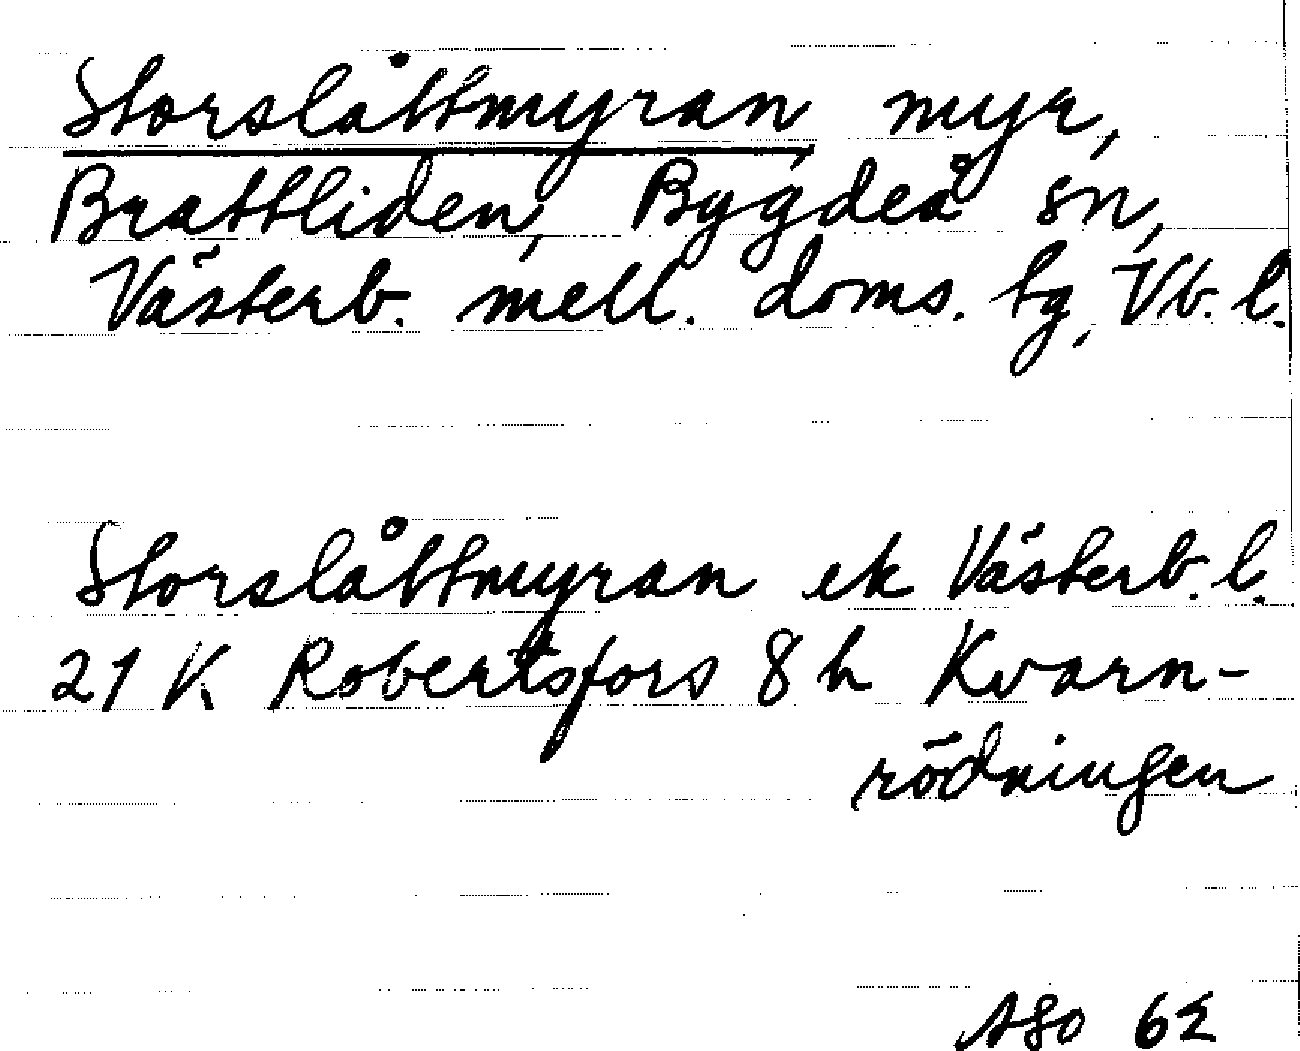 Storslåttmyran myr,
Brattliden, Bygdeå sn,
Västerb. mell. doms. tg, Vb. l.
Storslåttmyran ek Västerb. l.
21 K Robertsfors 8 h Kvarn-
rödningen
62